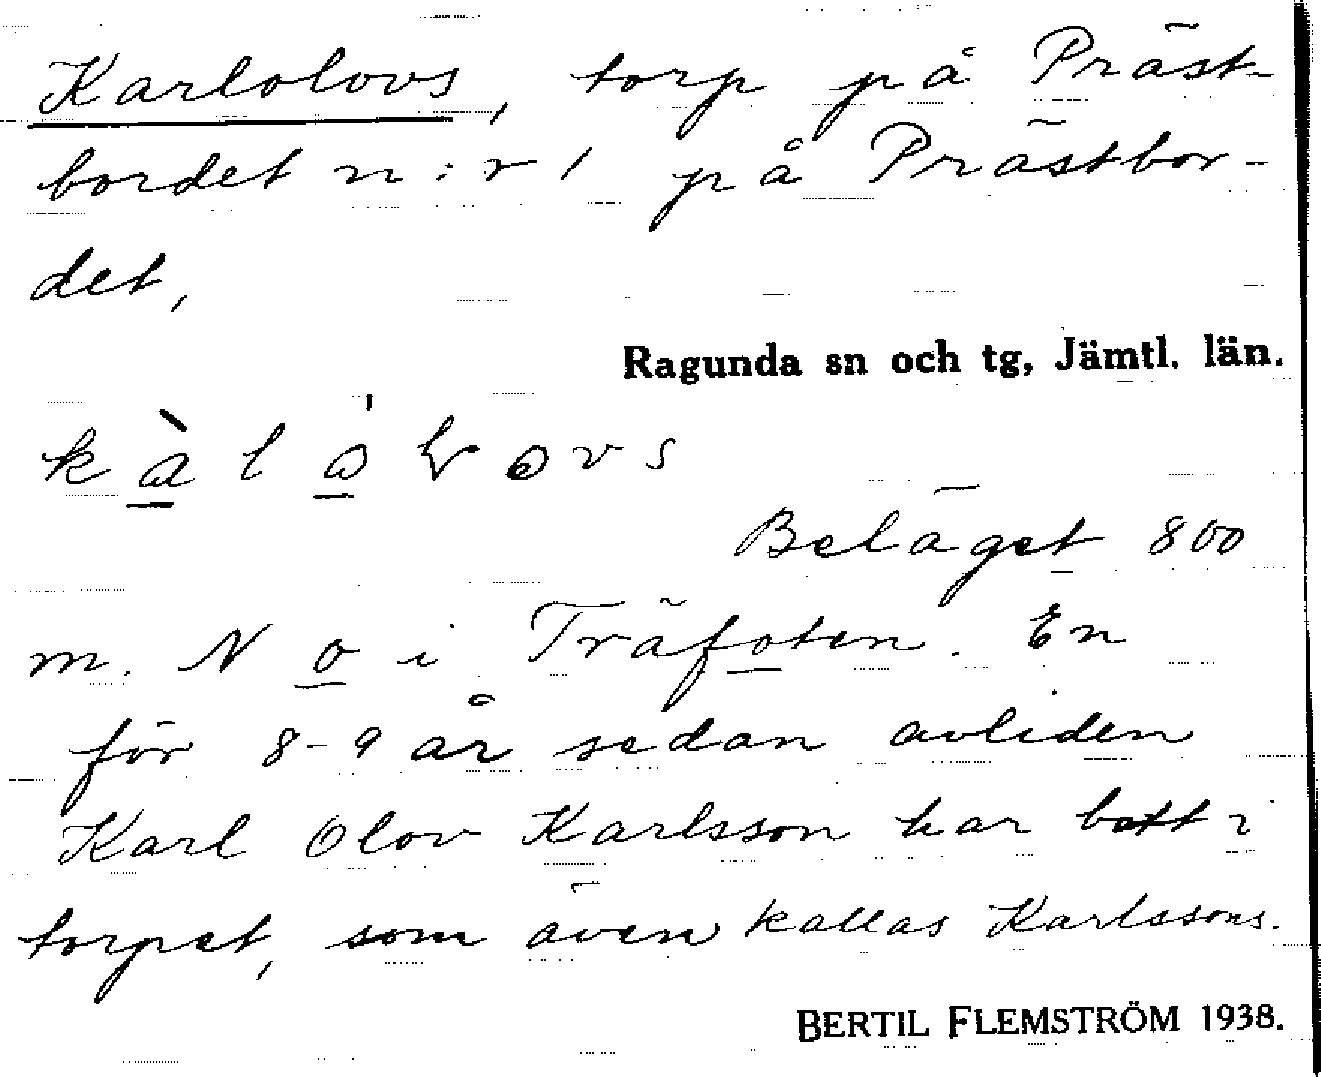 Karlolovs, torp på Präst-
bordet n:r 1 på Prästbor-
det,
Ragunda sn och tg, Jämtl. län.
Beläget 800
m. N o i Träfoten. En
för 8-9 år sedan avliden
Karl Olov Karlsson har bott i
torpet, som även kallas Karlssons.
BERTIL FLEMSTRÖM 1938.